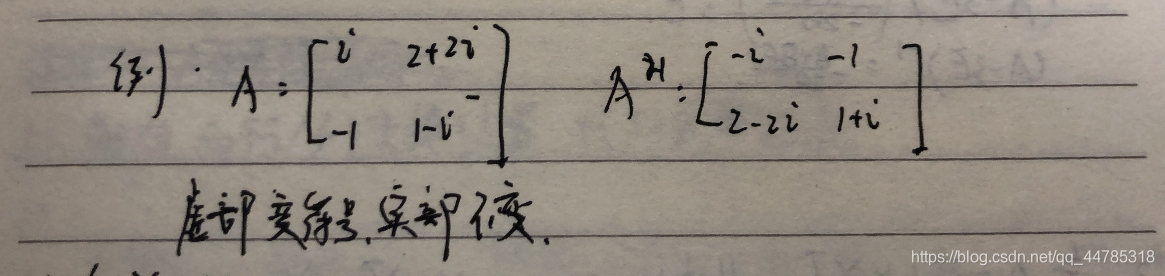 例. A = [ i 2+2i
-1 1-i ] A^H = [ -i -1
2-2i 1+i ]
虚部变符号,实部不变.
https://blog.csdn.net/qq_44785318